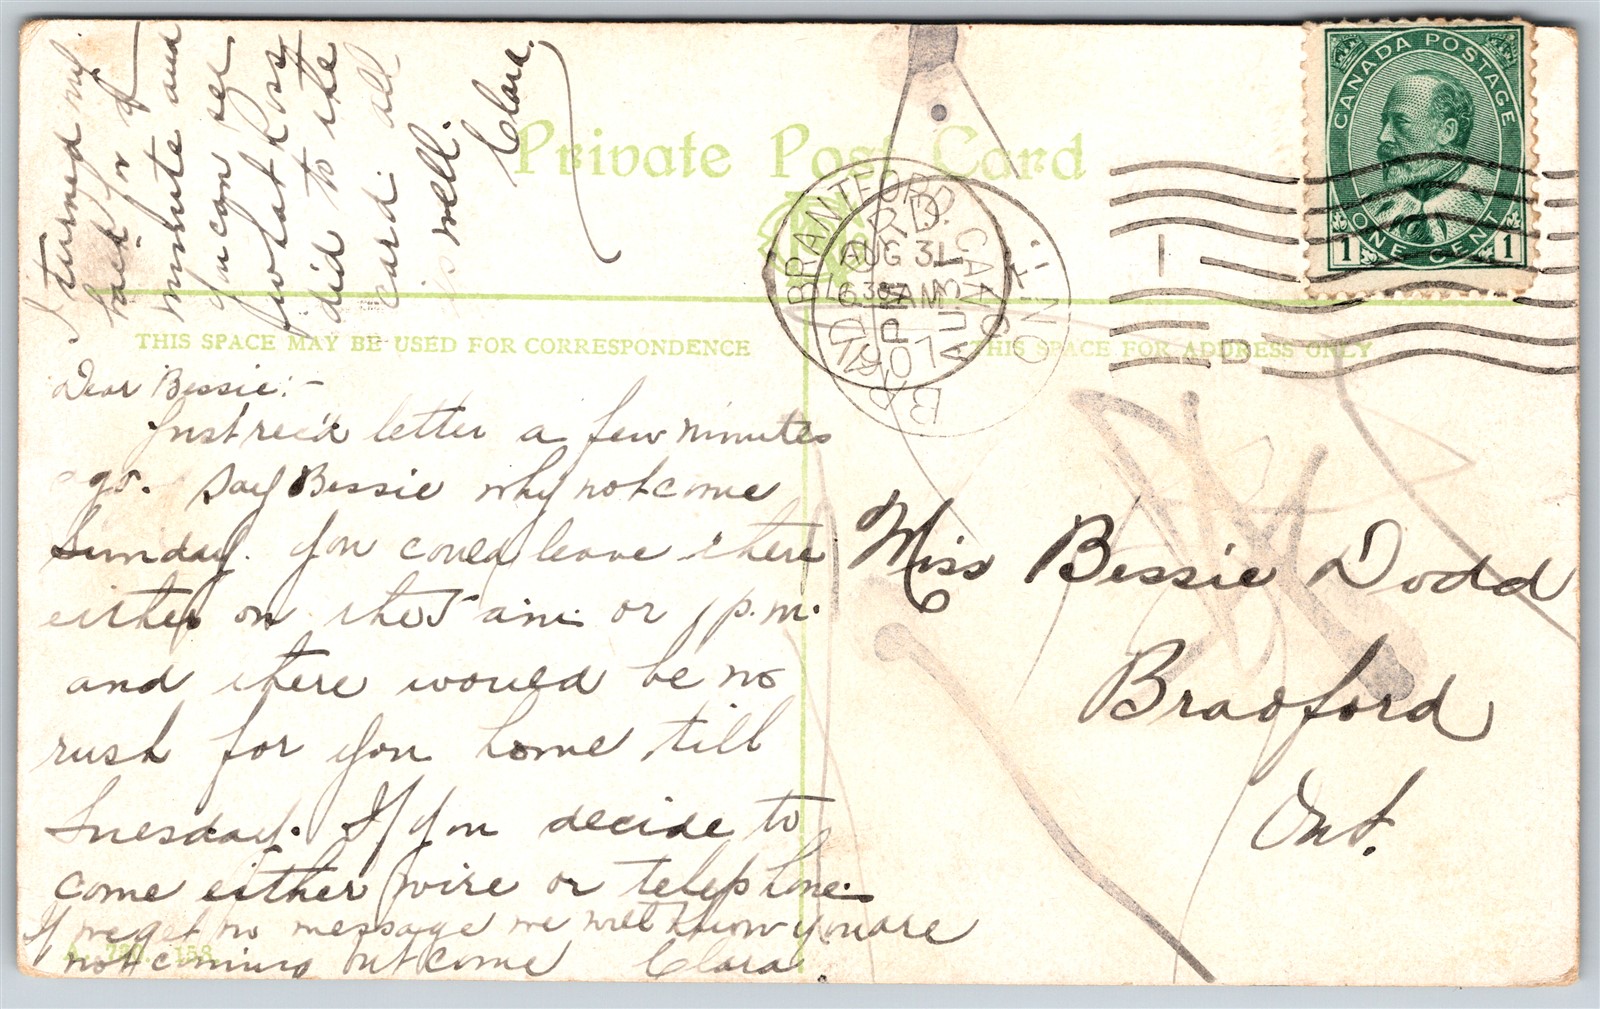 I turned my
back for a
minute and
you can see
what Ross
did to the
card. all
is well.
Clara.
Private Post Card
CANADA POSTAGE
ONE CENT
1 1
BRANTFORD, CAN
AUG 31
6 30 AM
1907
THIS SPACE MAY BE USED FOR CORRESPONDENCE
THIS SPACE FOR ADDRESS ONLY
Dear Bessie:-
Just rec'd letter a few minutes
ago. Say Bessie why not come
Sunday. You could leave there
either on the 5 a.m. or 1 p.m.
and there would be no
rush for you home till
Tuesday. If you decide to
come either wire or telephone.
If we get no message we will know you are
not coming but come Clara.
Miss Bessie Dodd
Bradford
Ont.